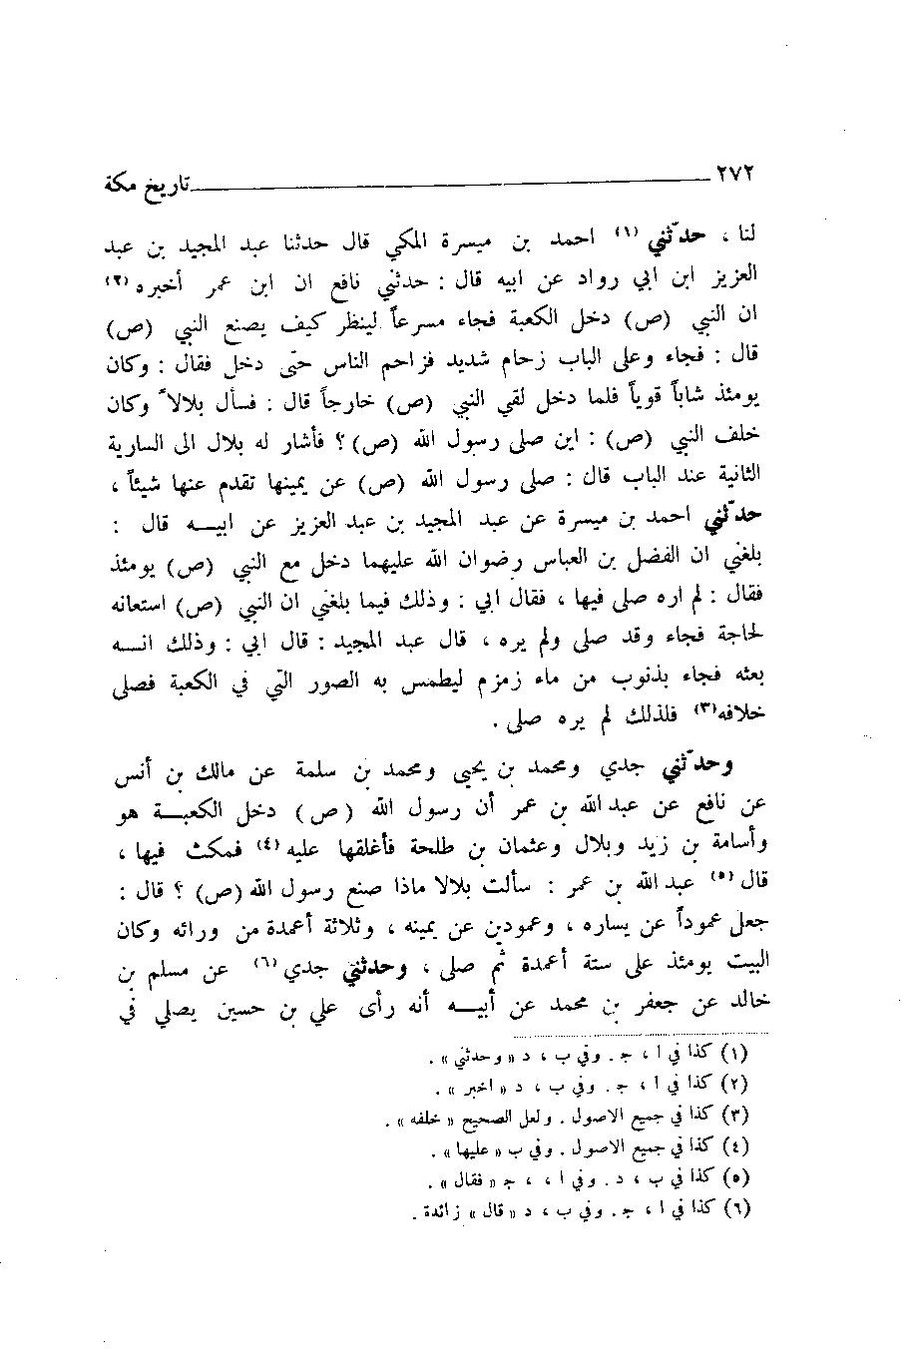 ٢٧٢ تاريخ مكة
لنا ، حدّثني (١) احمد بن ميسرة المكي قال حدثنا عبد المجيد بن عبد
العزيز ابن ابي رواد عن ابيه قال : حدثني نافع ان ابن عمر أخبره (٢)
ان النبي (ص) دخل الكعبة فجاء مسرعاً لينظر كيف يصنع النبي (ص)
قال : فجاء وعلى الباب زحام شديد فزاحم الناس حتى دخل فقال : وكان
يومئذ شاباً قوياً فلما دخل لقي النبي (ص) خارجاً قال : فسأل بلالاً وكان
خلف النبي (ص) : اين صلى رسول الله (ص) ؟ فأشار له بلال الى السارية
الثانية عند الباب قال : صلى رسول الله (ص) عن يمينها تقدم عنها شيئاً ،
حدّثني احمد بن ميسرة عن عبد المجيد بن عبد العزيز عن ابيــه قال :
بلغني ان الفضل بن العباس رضوان الله عليهما دخل مع النبي (ص) يومئذ
فقال : لم اره صلى فيها ، فقال ابي : وذلك فيما بلغني ان النبي (ص) استعانه
لحاجة فجاء وقد صلى ولم يره ، قال عبد المجيد : قال ابي : وذلك انــه
بعثه فجاء بذنوب من ماء زمزم ليطمس به الصور التي في الكعبة فصلى
خلافه (٣) فلذلك لم يره صلى .
وحدّثني جدي ومحمد بن يحيى ومحمد بن سلمة عن مالك بن أنس
عن نافع عن عبد الله بن عمر أن رسول الله (ص) دخل الكعبــة هو
وأسامة بن زيد وبلال وعثمان بن طلحة فأغلقها عليه (٤) فمكث فيها ،
قال (٥) عبد الله بن عمر : سألت بلالا ماذا صنع رسول الله (ص) ؟ قال :
جعل عموداً عن يساره ، وعمودين عن يمينه ، وثلاثة أعمدة من ورائه وكان
البيت يومئذ على ستة أعمدة ثم صلى ، وحدثني جدي (٦) عن مسلم بن
خالد عن جعفر بن محمد عن أبيــه أنه رأى علي بن حسين يصلي في
(١) كذا في ا ، ج . وفي ب ، د « وحدثني » .
(٢) كذا في ا ، ج . وفي ب ، د « اخبر » .
(٣) كذا في جميع الاصول . ولعل الصحيح « خلفه » .
(٤) كذا في جميع الاصول . وفي ب « عليها » .
(٥) كذا في ب ، د . وفي ا ، ، ج « فقال » .
(٦) كذا في ا ، ج . وفي ب ، د « قال » زائدة .